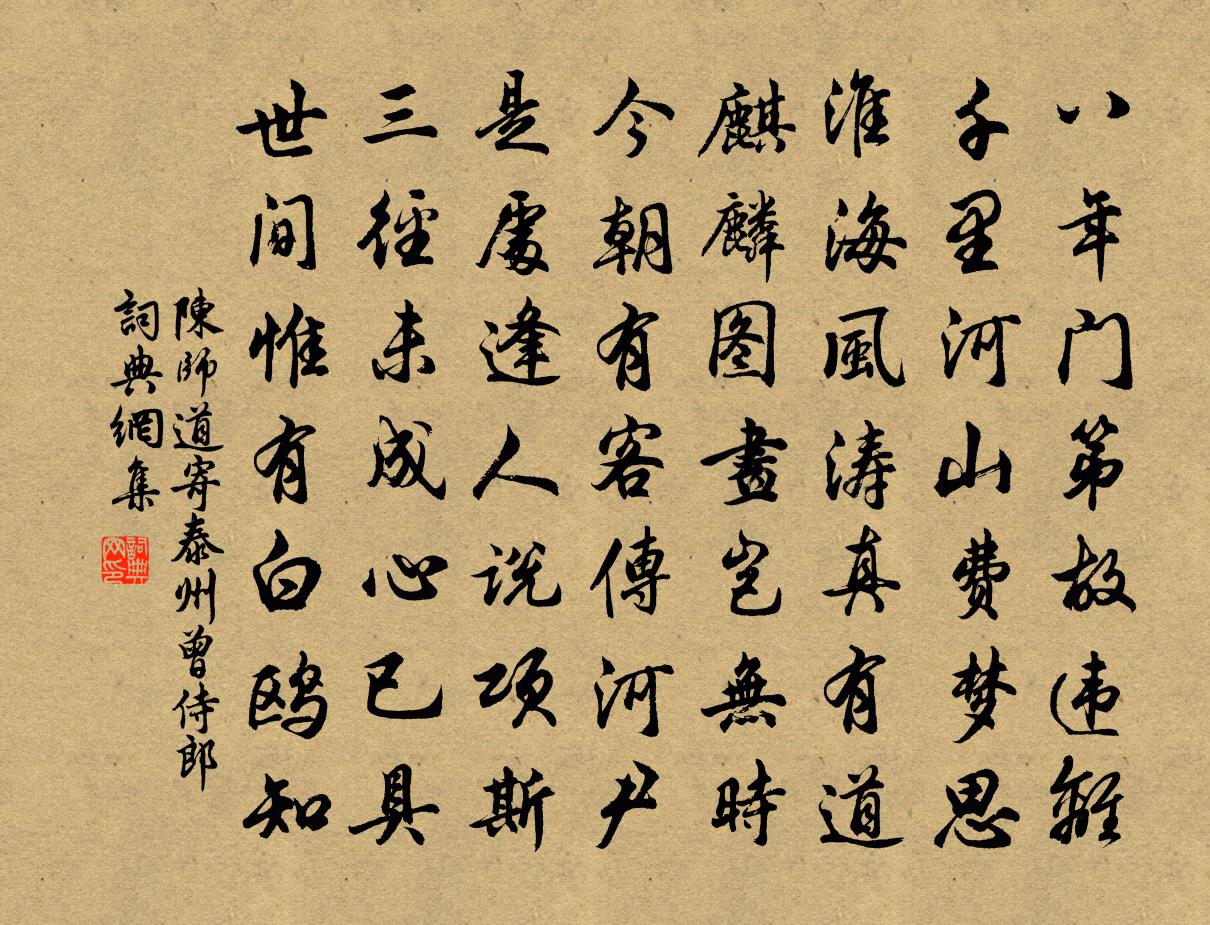 八年门第故违離
千里河山費梦思
淮海風涛真有道
麒麟图畫豈無時
今朝有客傳河尹
是處逢人説项斯
三徑未成心已具
世间惟有白鸥知
陳師道寄泰州曾侍郎
詞典網集
詞典网印